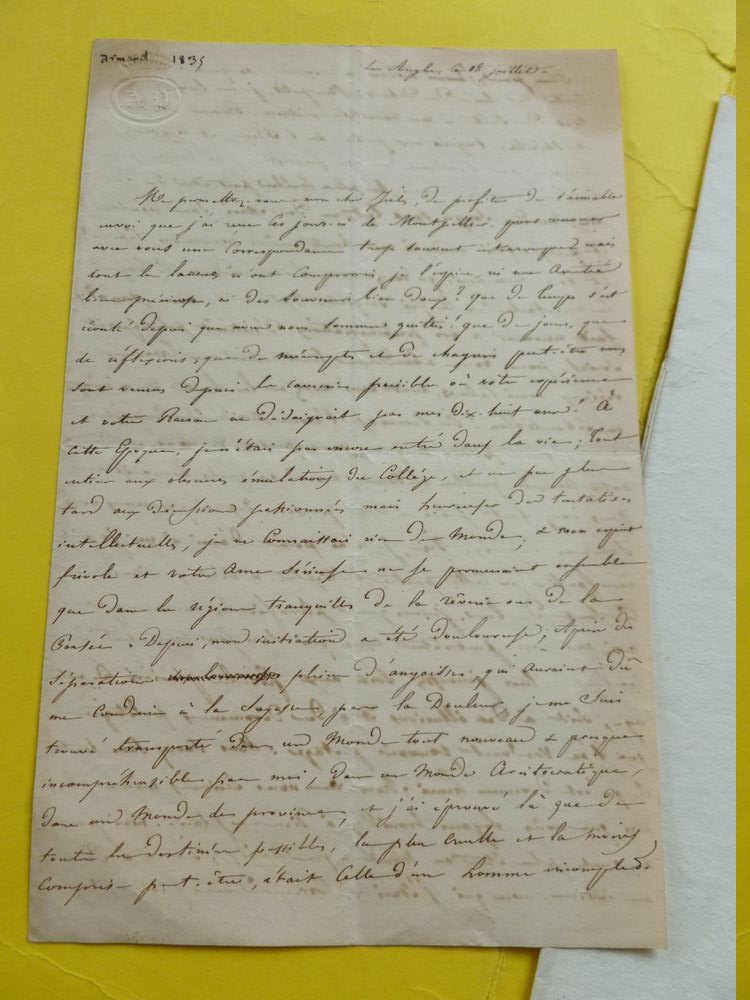 armand 1835
Les Angles ce 18 juillet.
Me permettez-vous, mon cher Jules, de profiter de l'aimable
envoi que j'ai reçu ces jours-ci de Montpellier, pour renouer
avec vous une Correspondance trop souvent interrompue, mais
dont les lacunes n'ont Compromis, je l'espère, ni une Amitié
bien précieuse, ni des Souvenirs bien doux? que de temps s'est
écoulé depuis que nous nous sommes quittés! que de jours, que
de réflexions, que de mécomptes et de chagrins peut-être nous
sont venus depuis les causeries paisibles où votre expérience
et votre Raison ne dédaignait pas mes dix-huit ans! À
cette Epoque, je n'étais pas encore entré dans la vie; tout
entier aux obscures émulations du Collège, et un peu plus
tard aux discussions passionnées mais heureuses des tentatives
intellectuelles, je ne Connaissais rien du Monde, & mon esprit
frivole et votre Ame Sérieuse ne se promenaient ensemble
que dans les régions tranquilles de la rêverie ou de la
Pensée. Depuis, mon initiation a été douloureuse; Après des
Séparations pleines d'angoisses, qui Auraient dû
me Conduire à la Sagesse par la Douleur, je me Suis
trouvé transporté dans un Monde tout nouveau & presque
incompréhensible pour moi, dans un Monde Aristocratique,
dans un Monde de province, et j'ai éprouvé là que de
toutes les destinées possibles, la plus cruelle et la moins
Comprise peut-être, était Celle d'un homme incomplet.